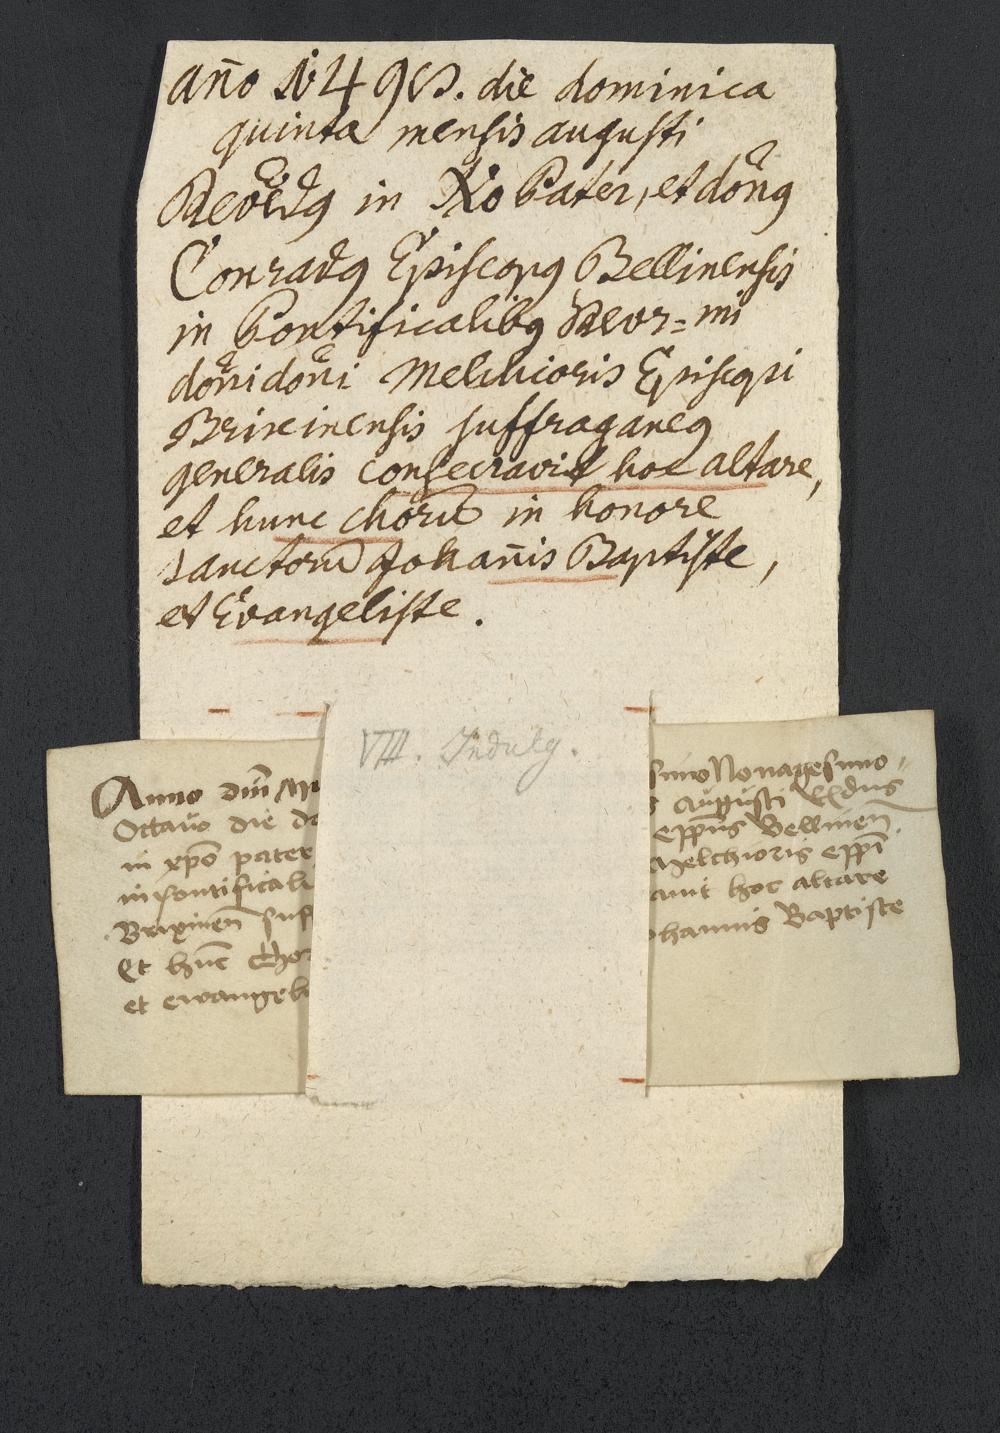 año 1498. die dominica
quinta mensis augusti
Reverdg in Xo Pater, et doñg
Conradg Episcopg Bellinensis
in Pontificalibg Revr=mi
doñi doñi Melchioris Episcopi
Brixinensis suffraganeg
generalis consecravit hoc altare,
et hunc chorũ in honore
sanctorũ Johañis Baptiste,
et Evangeliste.
VIII. Indulg.
Anno dm̄
simo Nonagesimo
Octavo die
Augusti
in xpō pater
epp̄us Bellinen̄
in pontificali
Melchioris epp̄i
Brixinen̄ suf
avit hoc altare
Et hūc chor
ohannis Baptiste
et ewangeli